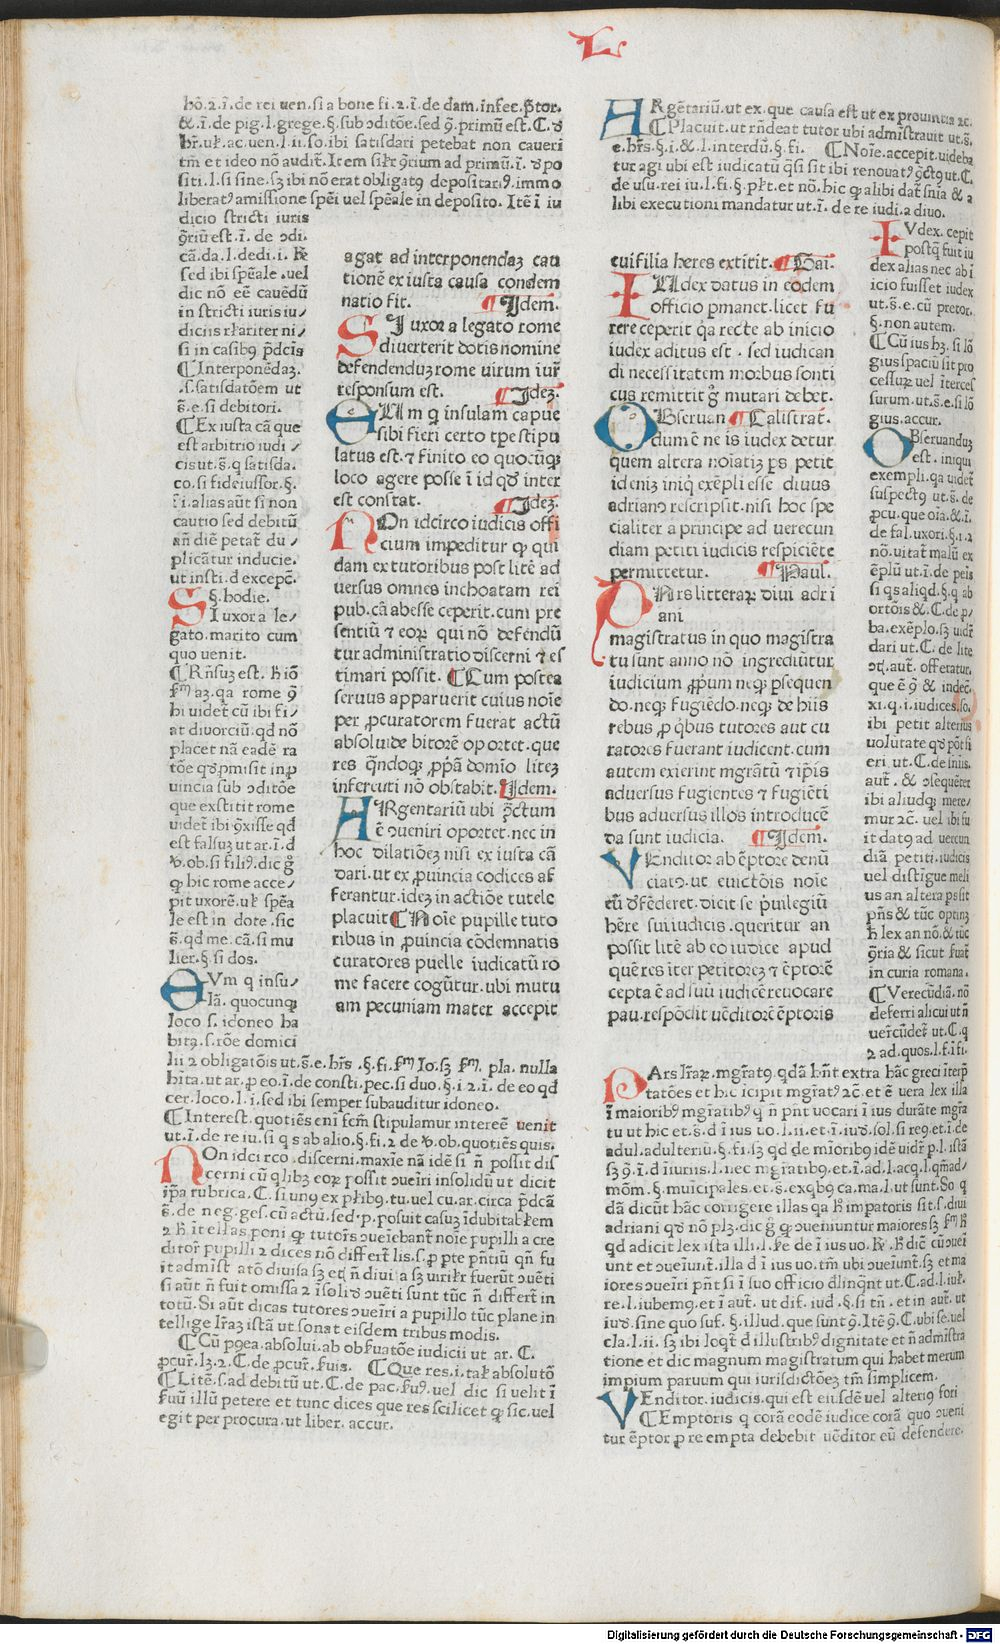 L
hō.2.ī.de rei uen.si a bone fi.2.ī.de dam.infec.p̄tor.
&.ī.de pig.l.grege.§.sub ↄditōe.sed ꝯ.primū est.C.ꝺ
hr̄.uł.ac.uen.l.ii.so.ibi satisdari petebat non caueri
tm̄ et ideo nō audit᷑.Item sił'r ꝯtrium ad primū.ī.ꝺpo
siti.l.si sine.sꝫ ibi nō erat obligatꝯ depositariꝰ.immo
liberatꝰ amissione spēi uel spēale in deposito.Itē ī iu
dicio stricti iuris
ꝯriū est.ī.de ↄdi.
cā.da.l.dedi.ī.℞
sed ibi spēale.uel
dic nō eē cauēdū
in stricti iuris iu/
diciis rłariter ni/
si in casibꝯ p̄dcis
¶Interponēdaꝫ.
.s.satisdatōem ut
s̄.e.si debitori.
¶Ex iusta cā que
est arbitrio iudi/
cis ut.s̄.q satisda.
co.si fideiussor.§.
ī.i.alias aūt si non
cautio sed debitū
añ diē petat᷑ du/
plicātur inducie.
ut insti.d excepc̄.
§.hodie.
SI uxor a le/
gato.marito cum
quo uenit.
¶Rn̄suꝫ est.ħ iō
fm̄ aꝫ.qa rome ꝯ
hi uidet᷑ cū ibi fi/
at diuorciū.qd nō
placet nā eadē ra
tōe qꝺ pmisit in p
uincia sub ↄditōe
que exstitit rome
uidet᷑ ibi ꝯxisse qd
est falsuꝫ ut ar.ī.d
ꝟ.ob.si filiꝰ.dic g̊
ꝙ hic rome acce/
pit uxorē.uł spēa
le est in dote.sic
s̄.qd me.cā.si mu
lier.§.si dos.
EVm q insu/
lā.quocunqꝫ
loco s.idoneo ha
bita.s.rōe domici
lii 2 obligatōis ut.s̄.e.hr̄s.§.fi.fm̄ Io.sꝫ fm̄.pla.nulla
hita.ut ar.ꝑ eo.ī.de consti.pec.si duo.§.i 2.ī.de eo qd
cer.loco.l.i.sed ibi semper subauditur idoneo.
¶Interest.quotiēs eni fcm̄ stipulamur intereē uenit
ut.ī.de re iu.si q s ab alio.§.fi.2 de ꝟ.ob.quotiēs quis.
NOn idcirco.discerni.maxīe nā idē si n̄ possit dis
cerni cū qlibꝫ eoꝝ possit ↄueīri insolidū ut dicit
ip̄a rubrica.C.si unꝯ ex płibꝯ.tu.uel cu.ar.circa p̄dcā
s̄.de neg.ges.cū actū.sed.p.posuit casuꝫ īdubitabłem
2 ħ ītellas poni ꝙ tutor̄s ↄueiebant᷑ noīe pupilli a cre
ditor᷑ pupilli 2 dices nō differt᷑ lis.s.ꝓ pte pn̄tiū qn̄ fu
it admīst᷑ atō diuisa sꝫ et(n̄ diui a sꝫ uirił'r fuerūt ↄuēti
si aūt n̄ fuit omissa 2 īsolid ↄuēti sunt tūc n̄ differt᷑ in
totū.Si aūt dicas tutores ↄueīri a pupillo tūc plane in
tellige lr̄aꝫ istā ut sonat eisdem tribus modis.
¶Cū pꝯea.absolui.ab obſuatōe iudicii ut ar.C.
ꝓcur̄.lꝫ.2.C.de ꝓcur̄.ſuis. ¶Que res.i.tał absolutō
¶Litē.s.ad debitū ut.C.de pac.ſuꝰ.uel dic si uelit ī
ſuū illū petere et tunc dices que res scilicet ꝙ sic.uel
egit per procura.ut liber.accur.
agat ad interponendaꝫ cau
tionē ex iusta causa condem
natio fit. ¶Idem.
SI uxor a legato rome
diuerterit dotis nomine
defendenduꝫ rome uirum iur̄
responsum est. ¶Ideꝫ.
EUm q insulam capue
sibi fieri certo tꝑe stipu
latus est.⁊ finito eo quocūqꝫ
loco agere posse ī id qꝺ inter
est constat. ¶Ideꝫ.
NOn idcirco iudicis offi
cium impeditur ꝙ qui
dam ex tutoribus post litē ad
uersus omnes inchoatam rei
pub.cā abesse ceperit.cum pre
sentiū ⁊ eoꝝ qui nō defendū
tur administratio discerni ⁊ es
timari possit. ¶Cum postea
seruus apparuerit cuius noīe
per ꝓcuratorem fuerat actū
absolui de bitorē oportet.que
res qn̄doqꝫ ꝓp̄a domīo liteꝫ
inferēti nō obstabit. ¶Idem.
ARgentariū ubi ꝯ̄ctum
ē ↄueniri oportet.nec in
hoc dilatiōeꝫ nisi ex iusta cā
dari.ut ex ꝓuincia codices af
ferantur.ideꝫ in actiōe tutele
placuit ¶Noīe pupille tuto
ribus in ꝓuincia cōdemnatis
curatores puelle iudicatū ro
me facere cogūtur.ubi mutu
am pecuniam mater accepit
ARgētariū.ut ex.que causa est ut ex prouincia 2c.
¶Placuit.ut rn̄deat tutor ubi admīstrauit ut.s̄.
e.hr̄s.§.i.&.l.interdū.§.fi. ¶Noīe.accepit.uideba
tur agi ubi est iudicatū qsi sit ibi renouatꝰ ꝯctꝯ ut.C.
de usu.rei iu.l.fi.§.płt.et nō.hic ꝙ alibi dat᷑ snīa & a
libi executioni mandatur ut.ī.de re iudi.a diuo.
cui filia heres extitit. ¶Gai.
IUdex datus in eodem
officio pmanet.licet fu
rere ceperit qa recte ab inicio
iudex aditus est.sed iudican
di necessitatem morbus sonti
cus remittit g̊ mutari debet.
OBseruan ¶Calistrat᷑.
dum ē ne is iudex detur
quem altera noīatiꝫ ꝑs petit
id eniꝫ iniqꝫ exēpli esse diuus
adrianꝯ rescripsit.nisi hoc spe
cialiter a principe ad uerecun
diam petiti iudicis respiciēte
permittetur. ¶Paul.
PArs litteraꝝ diui adri
ani
magistratus in quo magistra
tu sunt anno nō ingrediūtur
iudicium ꝓpum neqꝫ ꝑsequen
do.neqꝫ fugiēdo.neqꝫ de hiis
rebus ꝓ qbus tutores aut cu
ratores fuerant iudicent.cum
autem exierint mgratū ⁊ ip̄is
aduersus fugientes ⁊ fugiēti
bus aduersus illos introducē
da sunt iudicia. ¶Idem.
VEnditor ab ēptore denū
ciatꝯ.ut euictōis noīe
eū ꝺfēderet.dicit se p̄uilegiū
hēre sui iudicis.queritur an
possit litē ab eo iudice apud
quē res iter petitoreꝫ ⁊ ēptorē
cepta ē ad suū iudicē reuocare
pau.respōdit uēditorē ēptoris
IVdex.cepit
postꝗ fuit iu
dex alias nec ab i
icio fuisset iudex
ut.s̄.e.cū pretor.
§.non autem.
¶Cū ius hꝫ.si lō
gius spaciū sit pro
cessuꝝ uel iterces
surum.ut.s̄.e.si lō
gius.accur.
OBseruanduꝫ
est.iniqui
exempli.qa uidet᷑
suspectꝯ ut.s̄.de
ꝓcu.que oīa.&.ī.
de fal.uxori.§.i.2
nō.uitat᷑ malū ex
ēplū ut.ī.de peis
si qs aliqd.§.q ab
ortōis &.C.de ꝓ/
ba.exēplo.sꝫ uidr̄
dari ut.C.de lite
ↄt.aut᷑.offeratur.
que ē ꝯ & indec̄.
xi.q.i.iudices.so.
ibi petit alterius
uolūtate qꝺ pōt fi
eri ut.C.de snīis.
aut᷑.& ↄsequēter
ibi aliudqꝫ mere/
mur 2c̄.uel ibi fu
it datꝯ ad uerecun
diā petiti.iudicis
uel distigue meli
us an altera ps sit
pn̄s & tūc optinꝫ
ħ lex an nō.& tūc
ꝯria & sicut fuat᷑
in curia romana.
¶Verecūdiā.nō
deferri alicui ut n̄
uer̄cūdet᷑ ut.C.q
2 ad.quos.l.f ī.fi.
PArs lr̄aꝝ.mgr̄atꝯ.qdā hn̄t extra hāc greci īterp̄
tatōes et hic īcipit mgr̄atꝯ 2c.et ē uera lex illa
ī maioribꝰ mgr̄atibꝰ q n̄ pn̄t uocari ī ius durāte mgr̄a
tu ut hic et.s̄.d ī ius uo.l.ii.et.ī.iuꝺ.sol.si reg.et.ī.de
adul.adulteriū.§.fi.sꝫ qd de mīoribꝯ idē uidr̄ p.l.istā
sꝫ ꝯ.ī.d īiuriis.l.nec mgratibꝯ.et.ī.ad.l.acq.l.qm̄ad/
mōm.§.muīcipales.et.s̄.exqbꝯ ca.ma.l.ut sunt.So.q
dā dicūt hāc corrigere illas qa ħ impatoris sit.s.diui
adriani qꝺ nō plꝫ.dic g̊ ꝙ ↄueniuntur maiores sꝫ fm̄ ħ
qd adicit lex ista illi.l.ł'e de ī ius uo.℞.ħ dic̄ cū ↄuei
unt et ↄueīunt᷑.illa d ī ius uo.tm̄ ubi ↄueīunt᷑.sꝫ et ma
iores ↄueīri pn̄t si ī suo officio dlīnqnt ut.C.ad.l.iuł.
re.l.iubemꝯ.et ī aut᷑.ut dif.iud.§.si tn̄.et in aut᷑.ut
iuꝺ.sine quo suf.§.illud.que sunt ꝯ.Itē ꝯ.C.ubi se.uel
cla.l.ii.sꝫ ibi loqt᷑ d illustribꝰ dignitate et n̄ admīstra
tione et dic magnum magistratum qui habet merum
impium paruum qui iurisdictōeꝫ tm̄ simplicem.
VEnditor.iudicis.qui est eiusdē uel alteriꝯ fori
¶Emptoris q corā eodē iudice corā quo ↄueni
tur ēptor ꝓ re empta debebit uēditor eū defendere.
Digitalisierung gefördert durch die Deutsche Forschungsgemeinschaft - DFG